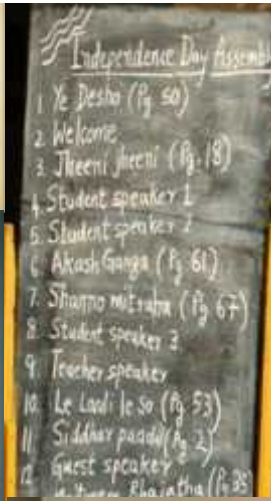 Independence Day Assemb
1 Ye Desho (Pg 50)
2 Welcome
3. Jheeni jheeni (Pg. 18)
4. Student speaker 1
5. Student speaker 2
6 Akash Ganga (Pg 61)
7. Shanno mitraha (Pg 67)
8. Student speaker 3
9 Teacher speaker
10. Le Laadi le so (Pg 53)
11. Siddhar paadal (Pg 2)
12 Guest speaker
Bhajatha (Pg 35)